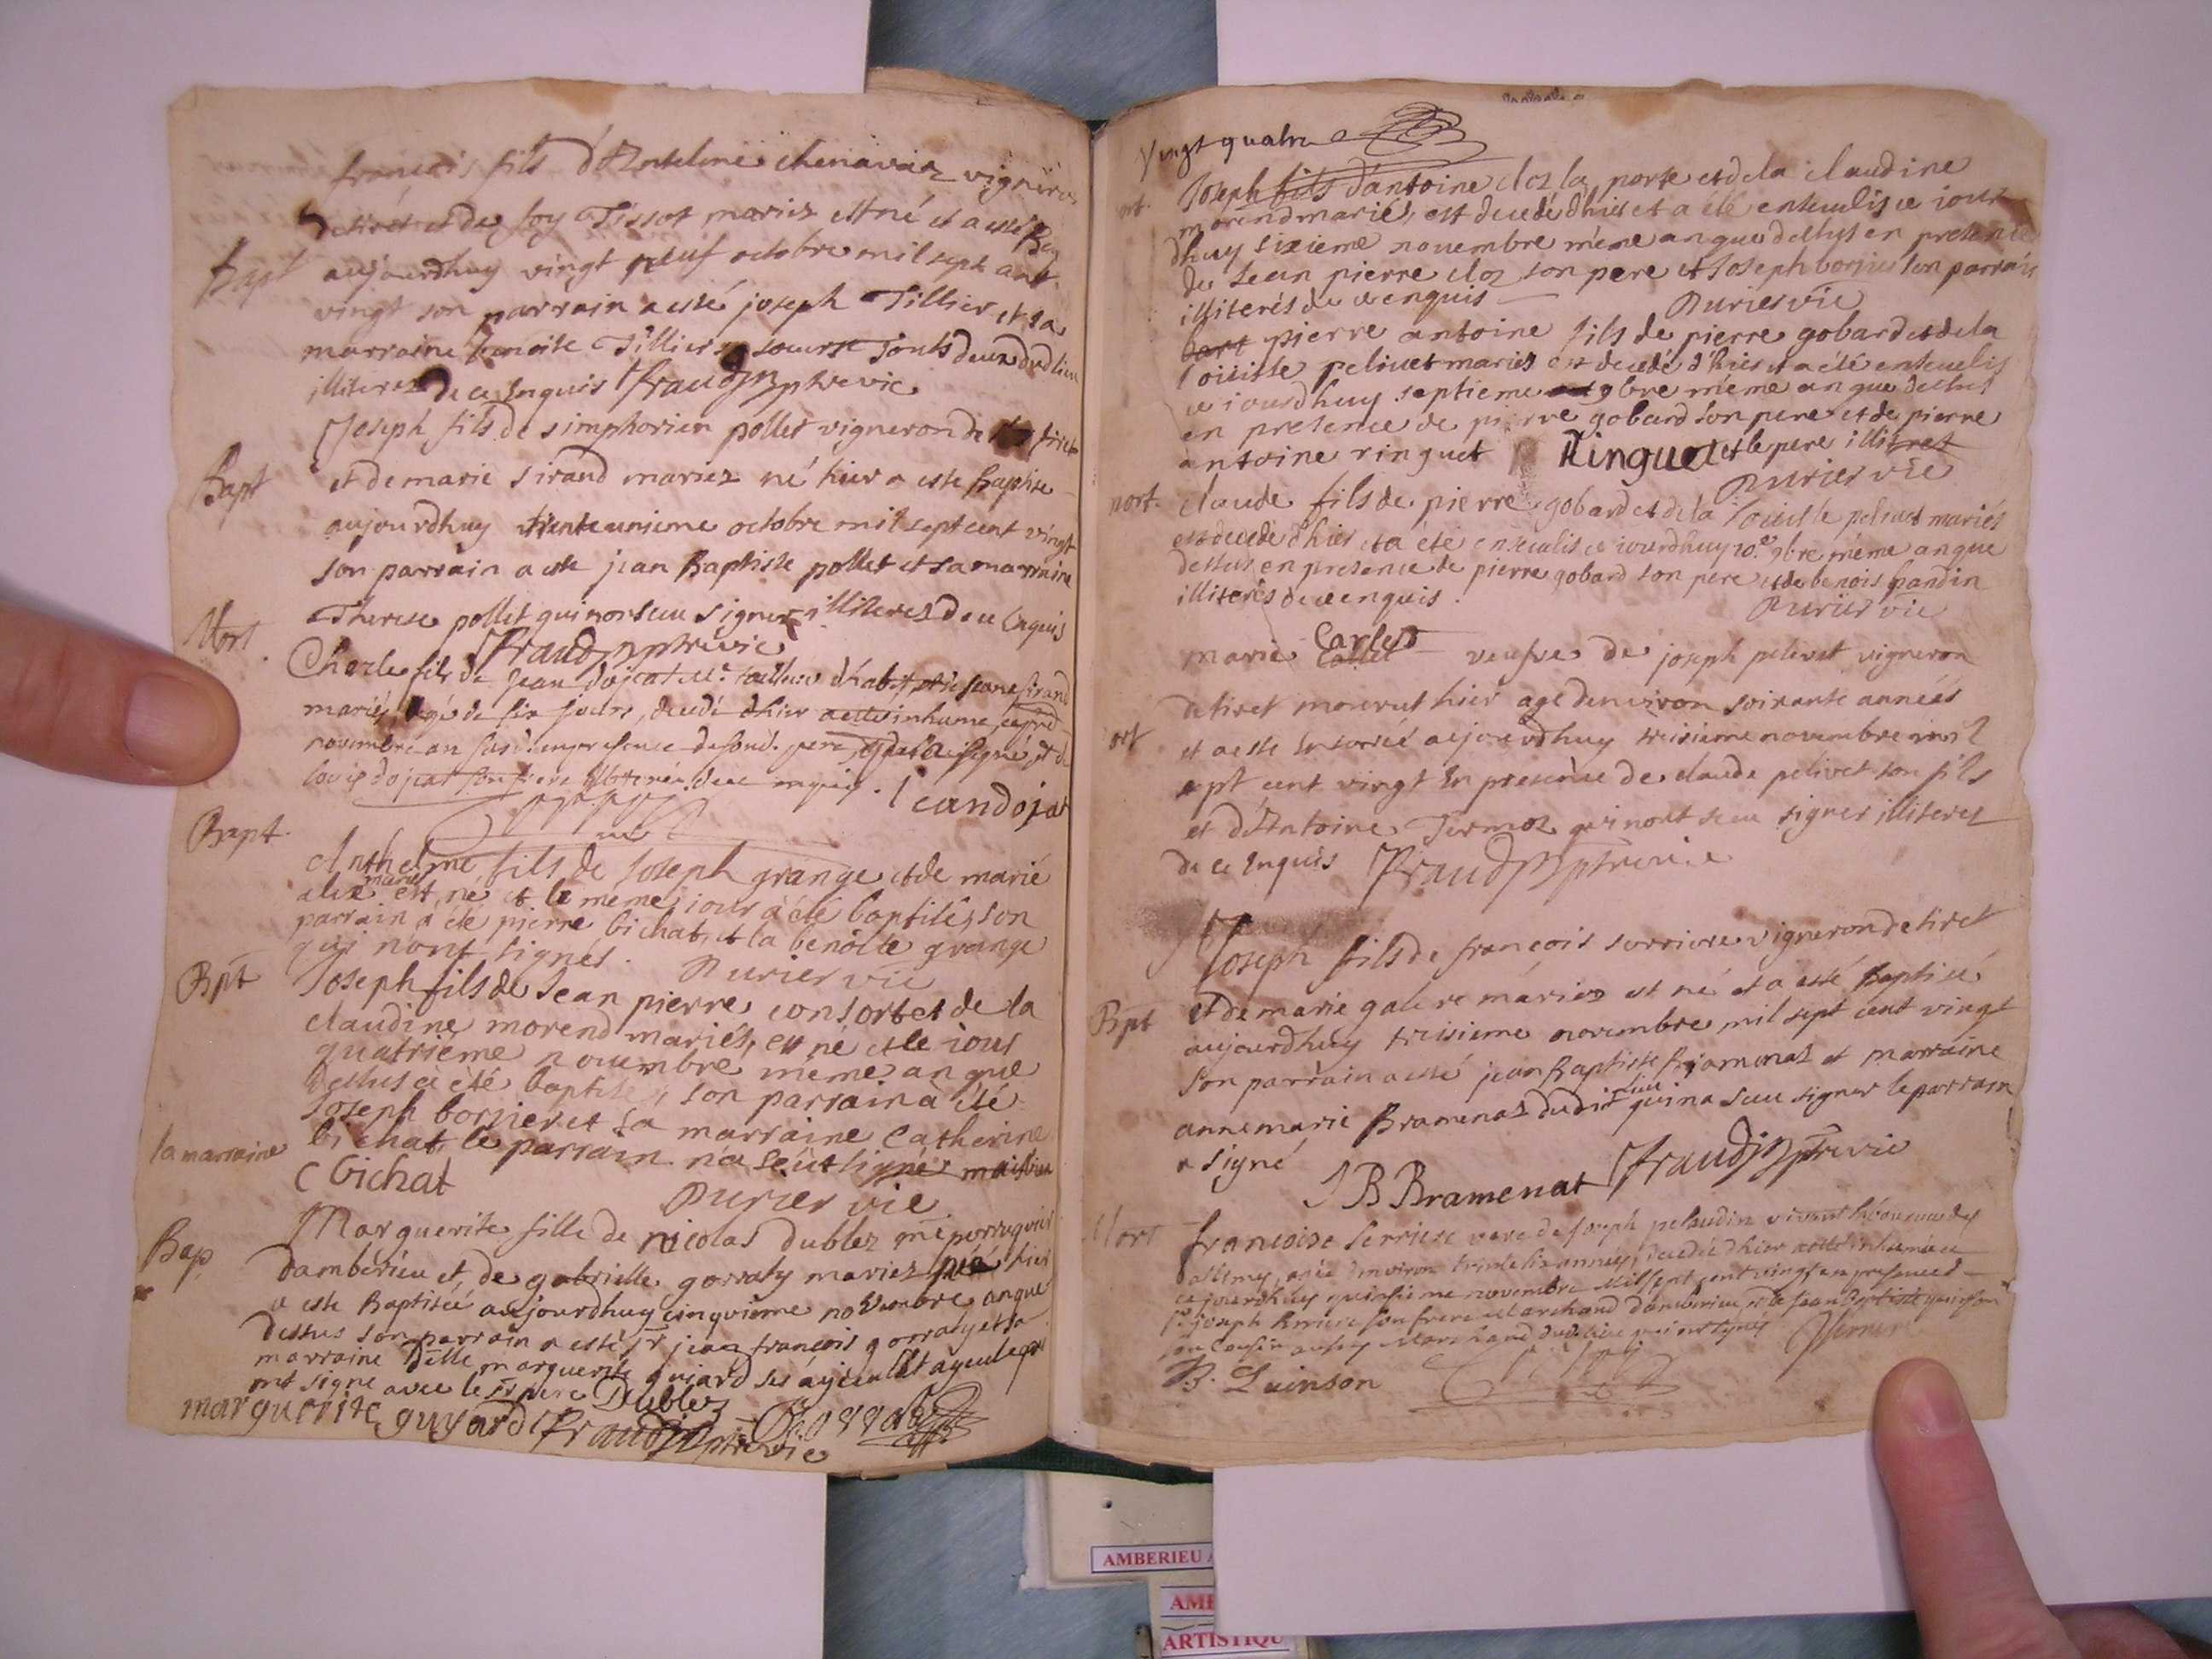 françois fils d'Anthelme chenavaz vigneron
de tiret et de foy Tissot mariez est né et a esté Bap
Bapt aujourdhuy vingt neuf octobre mil sept cent
vingt son parrain a esté joseph Tillier et sa
marraine benoite Tilliere soeurs touts deux dud lieu
illiterez de ce enquis fraudin ptre vic
Joseph fils de simphorien pollet vigneron de tiret
Bapt et de marie sirand mariez né hier a este Baptise
aujourdhuy trente unieme octobre mil sept cent vingt
son parrain a este jean Baptiste pollet et sa marraine
Therese pollet qui nont seu signer illiterez de ce enquis
fraudin ptre vic
Mort Charle fils de Jean dojat Mr tailleur dhabit et de Jeane sirand
mariés, agé de six jours, decedé dhier a esté inhumé, ce
novembre an susd. en presence dud. pere
louis dojat son frere illiteré de ce enquis. Jean dojat
Bapt. Anthelme fils de Joseph grange et de marié
alix mariés est né et le méme jour à été baptisé, son
parrain a été pierre bichat, et la benoite grange
qui nont signés. Purier vic
Bpt Joseph fils de Jean pierre consort et de la
claudine morend mariés, est né et le iour
quatriéme nouembre méme an que
dessus à été baptisé, son parrain à été
Joseph borsier et sa marraine Catherine
bichat, le parrain n'a seüt signé mais bien
la marraine
C bichat Purier vic
Marguerite fille de nicolas dublez me perruquier
Bap dambérieu et de gabrielle gorraty mariez née hier
a este Baptisée aujourdhuy cinquieme novembre an que
dessus son parrain a esté sr jean françois gorraty et sa
marraine delle marguerite guiard ses ayeul et ayeule qui
ont signé avec le sr pere Dublez
marguerite guyard fraudin ptre vic Gorraty
Vingt quatre
ort. Joseph fils d'antoine cloz la porte et de la claudine
morend mariés, est decedé d'hier et a été enseuelis ce iour
dhuy sixieme nouembre méme an que dessus en presence
de Jean pierre cloz son pere et Joseph borsier son parrain
illiterés de ce enquis Purier vic
pierre antoine fils de pierre gobard et de la
loüise peliuet mariés est decedé d'hier et a été enseuelis
ce iourdhuy septieme 9bre méme an que dessus
en presence de pierre gobard son pere et de pierre
antoine ringuet Ringuet et le pere illitret
Purier vic
mort. claude fils de pierre gobard et de la loüise peliuet mariés
est decedé d'hier et a été enseuelis ce iourdhuy 10.e 9bre méme an que
dessus en presence de pierre gobard son pere et de benois bandin
illiterés de ce enquis. Purier vic
marie Carlet veufve de joseph pelivet vigneron
de tiret mourut hier age denviron soixante années
ort et a este enterrée aujourdhuy treisieme novembre mil
sept cent vingt en presence de claude pelivet son fils
et d'Antoine Jermoz qui nont seu signer illiterez
de ce enquis fraudin ptre vic
Joseph fils de francois serriere vigneron de tiret
Bpt et de marie galere mariez est né et a esté Baptisé
aujourdhuy treisieme novembre mil sept cent vingt
son parrain a esté jean Baptiste Bramenaz et marraine
anne marie Bramenaz dudit lieu qui na seu signer le parrain
a signé
J B Bramenat fraudin ptre vic
Mort françoise Serriere veve de joseph pelaudin vivant
agée denviron trente six années, decedée dhier a esté inhumée
ce jourdhuy quinsieme novembre mil sept cent vingt en presence
sr joseph serriere son frere marchand damberieu et de Jean Baptiste quinson
son cousin aussy marchand dud. lieu qui ont signés
B. Quinson